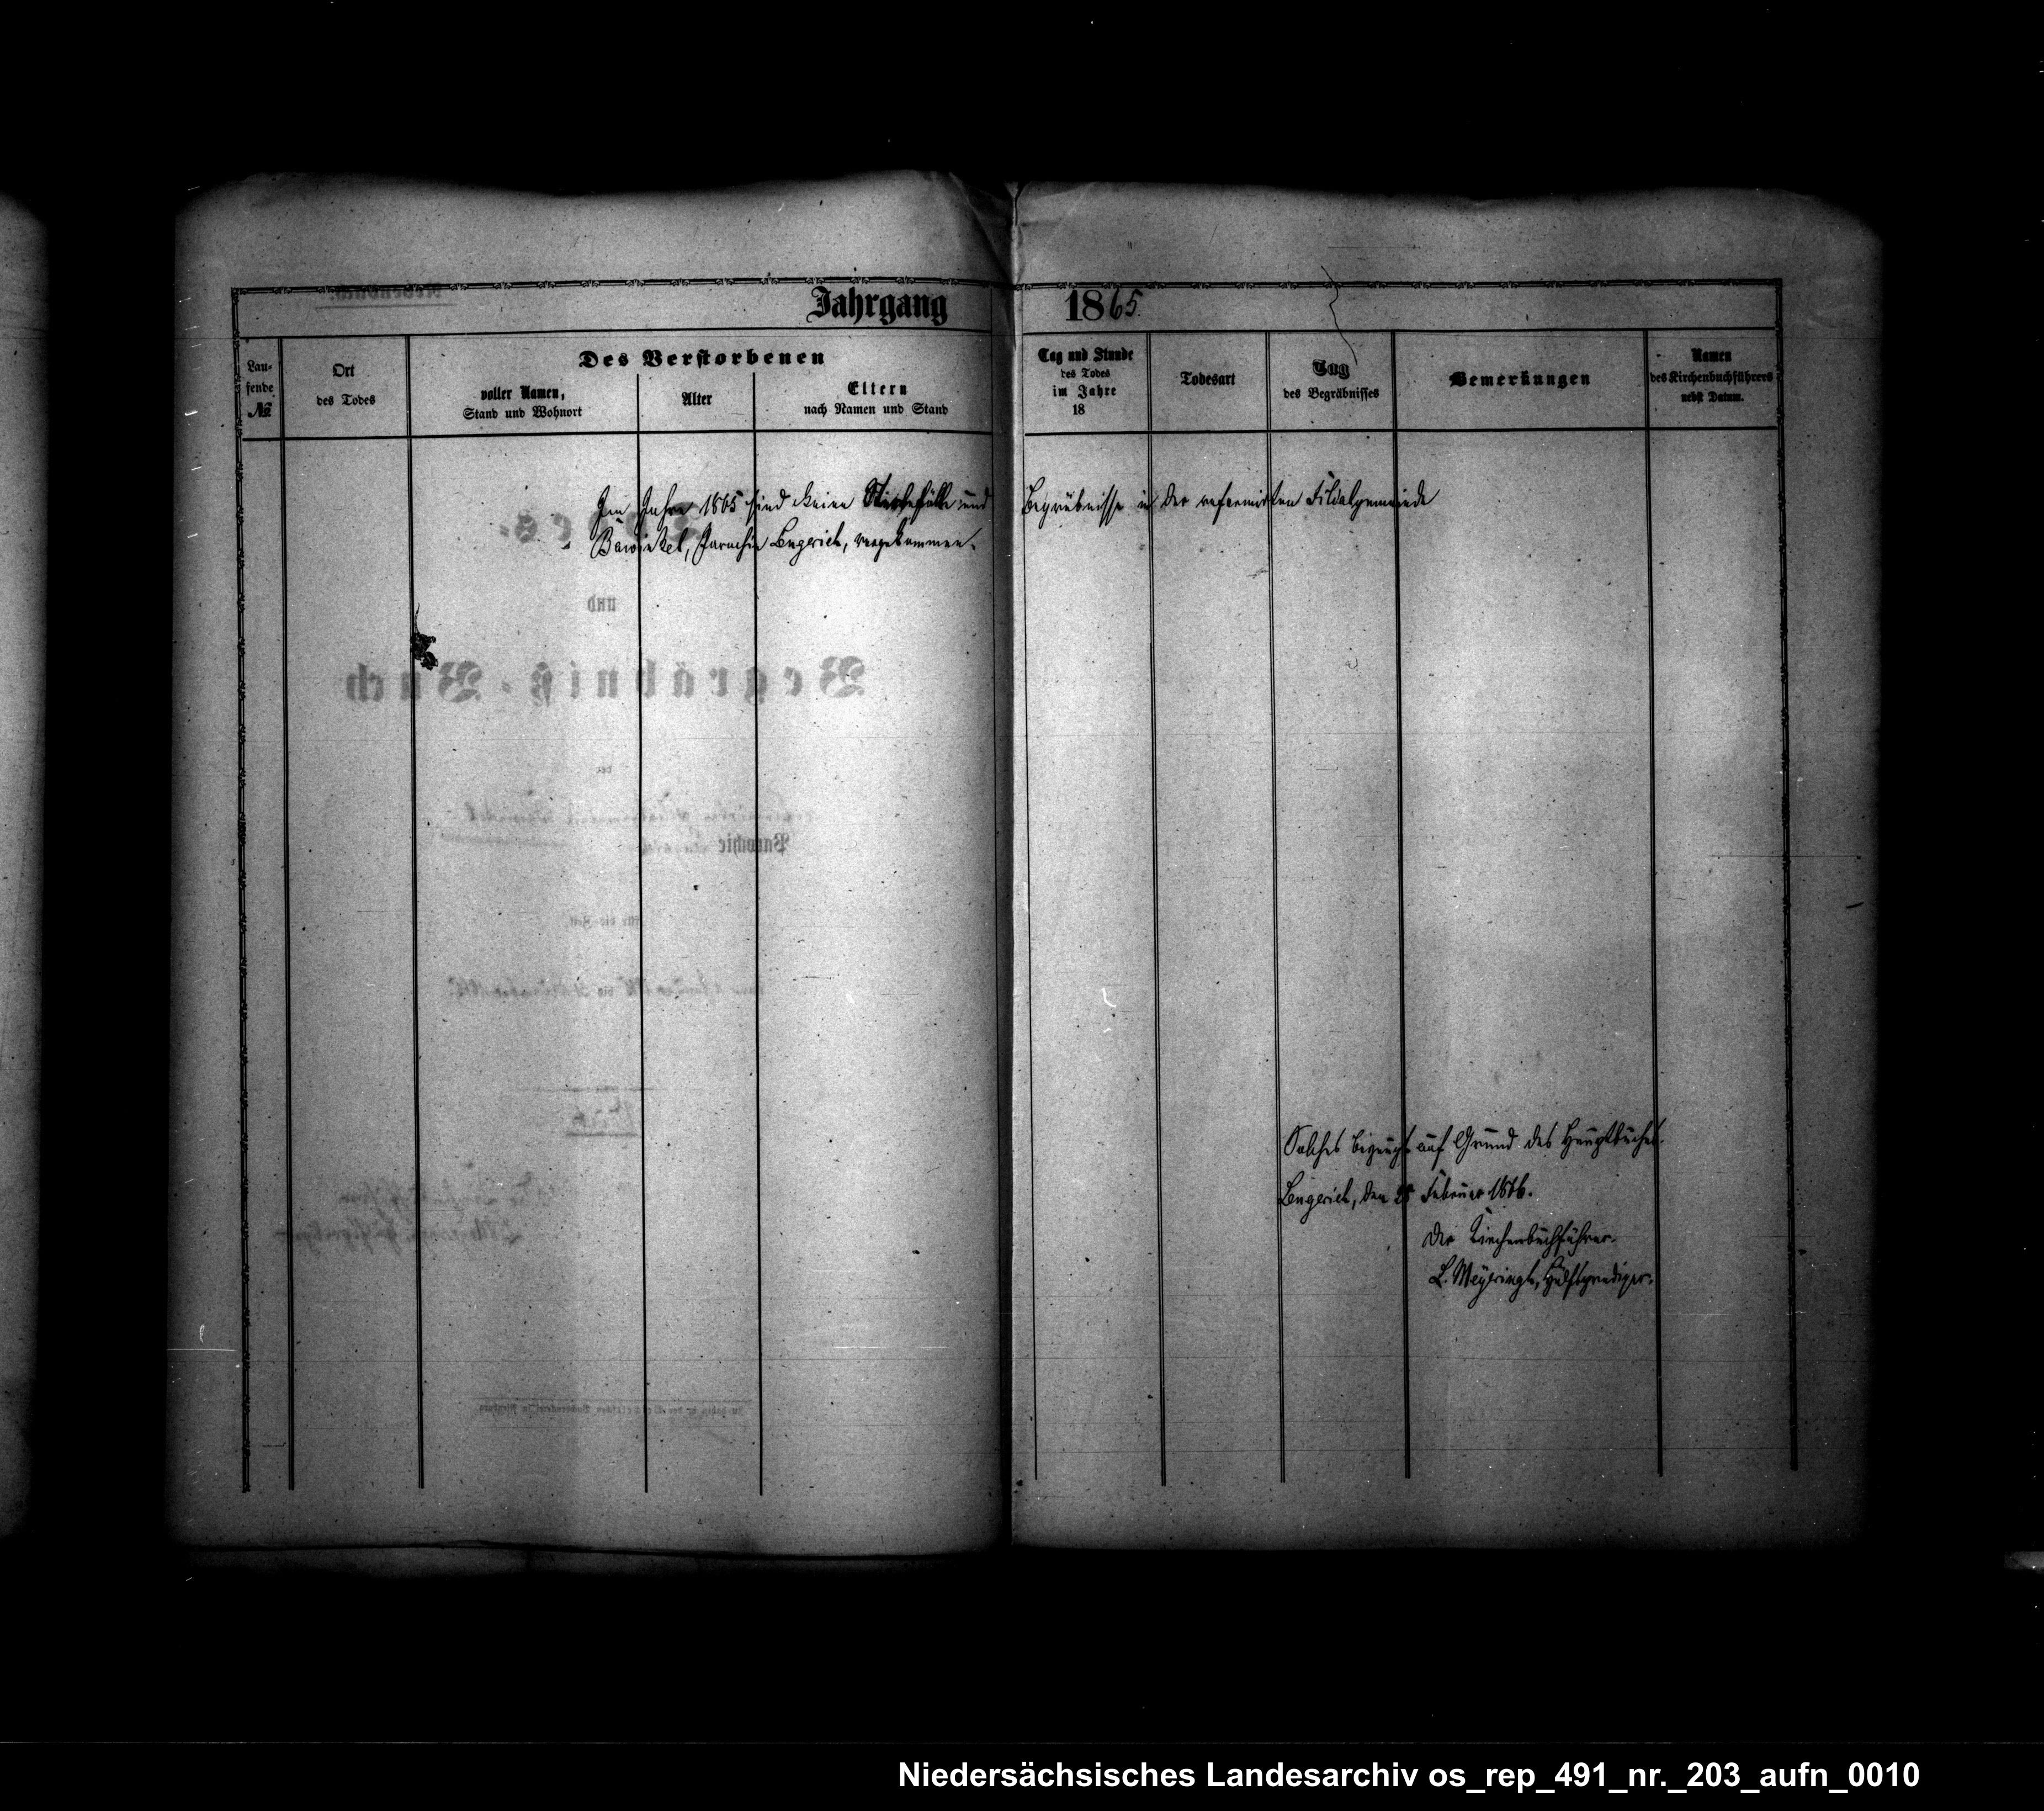 Jahrgang 1865.
Lau-
fende
№
Ort
des Todes
Des Verstorbenen
voller Namen,
Stand und Wohnort
Alter
Eltern
nach Namen und Stand
Tag und Stunde
des Todes
im Jahre
18
Todesart
Tag
des Begräbnisses
Bemerkungen
Namen
des Kirchenbuchführers
nebst Datum.
Im Jahre 1865 sind keine Sterbefälle und Begräbnisse in der reformirten Filialgemeinde
Bawinkel, Parochie Lengerich, vorgekommen.
Solches bezeugt auf Grund des Hauptbuches.
Lengerich, den Februar 1866.
Der Kirchenbuchführer.
L. Meyeringh, Hülfsprediger.
und
Begräbniß-Buch
der
Parochie
für die Zeit
Niedersächsisches Landesarchiv os_rep_491_nr._203_aufn_0010